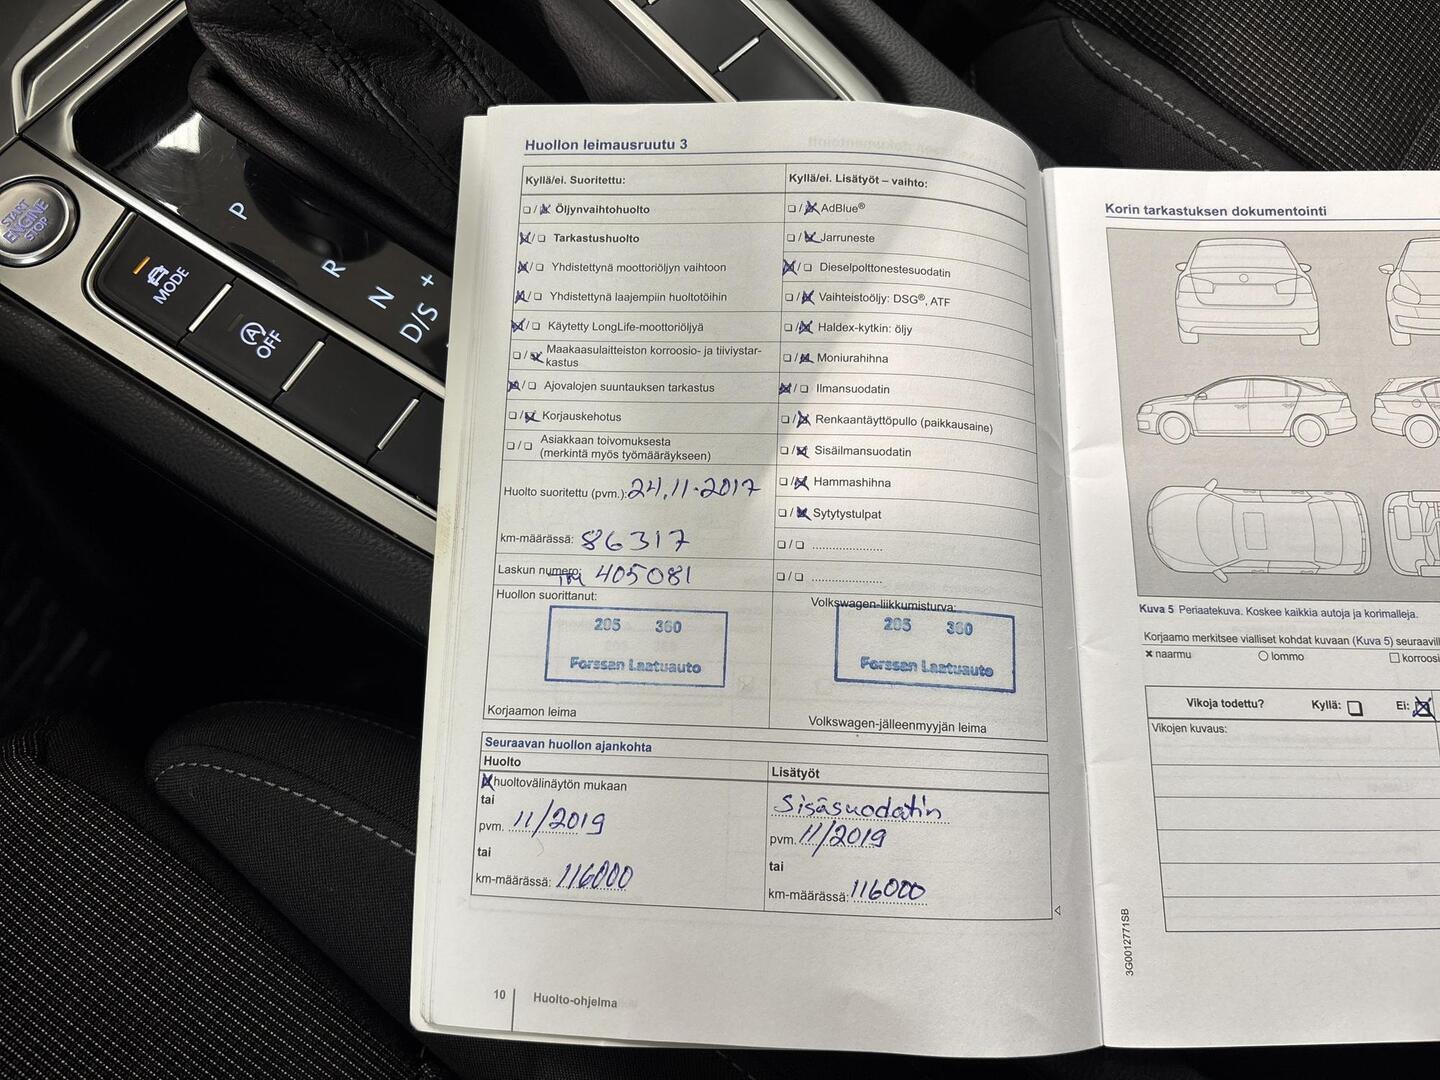 START
ENGINE
STOP
MODE
OFF
P
R
N
D/S
+
Huollon leimausruutu 3
Kyllä/ei. Suoritettu:
Öljynvaihtohuolto
Tarkastushuolto
Yhdistettynä moottoriöljyn vaihtoon
Yhdistettynä laajempiin huoltotöihin
Käytetty LongLife-moottoriöljyä
Maakaasulaitteiston korroosio- ja tiiviystar-
kastus
Ajovalojen suuntauksen tarkastus
Korjauskehotus
Asiakkaan toivomuksesta
(merkintä myös työmääräykseen)
Huolto suoritettu (pvm.): 24.11.2017
km-määrässä: 86317
Laskun numero: 405081
Huollon suorittanut:
205 360
Forssan Laatuauto
Korjaamon leima
Kyllä/ei. Lisätyöt – vaihto:
AdBlue®
Jarruneste
Dieselpolttonestesuodatin
Vaihteistoöljy: DSG®, ATF
Haldex-kytkin: öljy
Moniurahihna
Ilmansuodatin
Renkaantäyttöpullo (paikkausaine)
Sisäilmansuodatin
Hammashihna
Sytytystulpat
Volkswagen-liikkumisturva:
205 360
Forssan Laatuauto
Volkswagen-jälleenmyyjän leima
Seuraavan huollon ajankohta
Huolto
huoltovälinäytön mukaan
tai
pvm. 11/2019
tai
km-määrässä: 116000
Lisätyöt
Sisäsuodatin
pvm. 11/2019
tai
km-määrässä: 116000
10 Huolto-ohjelma
Korin tarkastuksen dokumentointi
Kuva 5 Periaatekuva. Koskee kaikkia autoja ja korimalleja.
Korjaamo merkitsee vialliset kohdat kuvaan (Kuva 5)
naarmu lommo
Vikoja todettu? Kyllä: Ei:
Vikojen kuvaus:
3G0012771SB